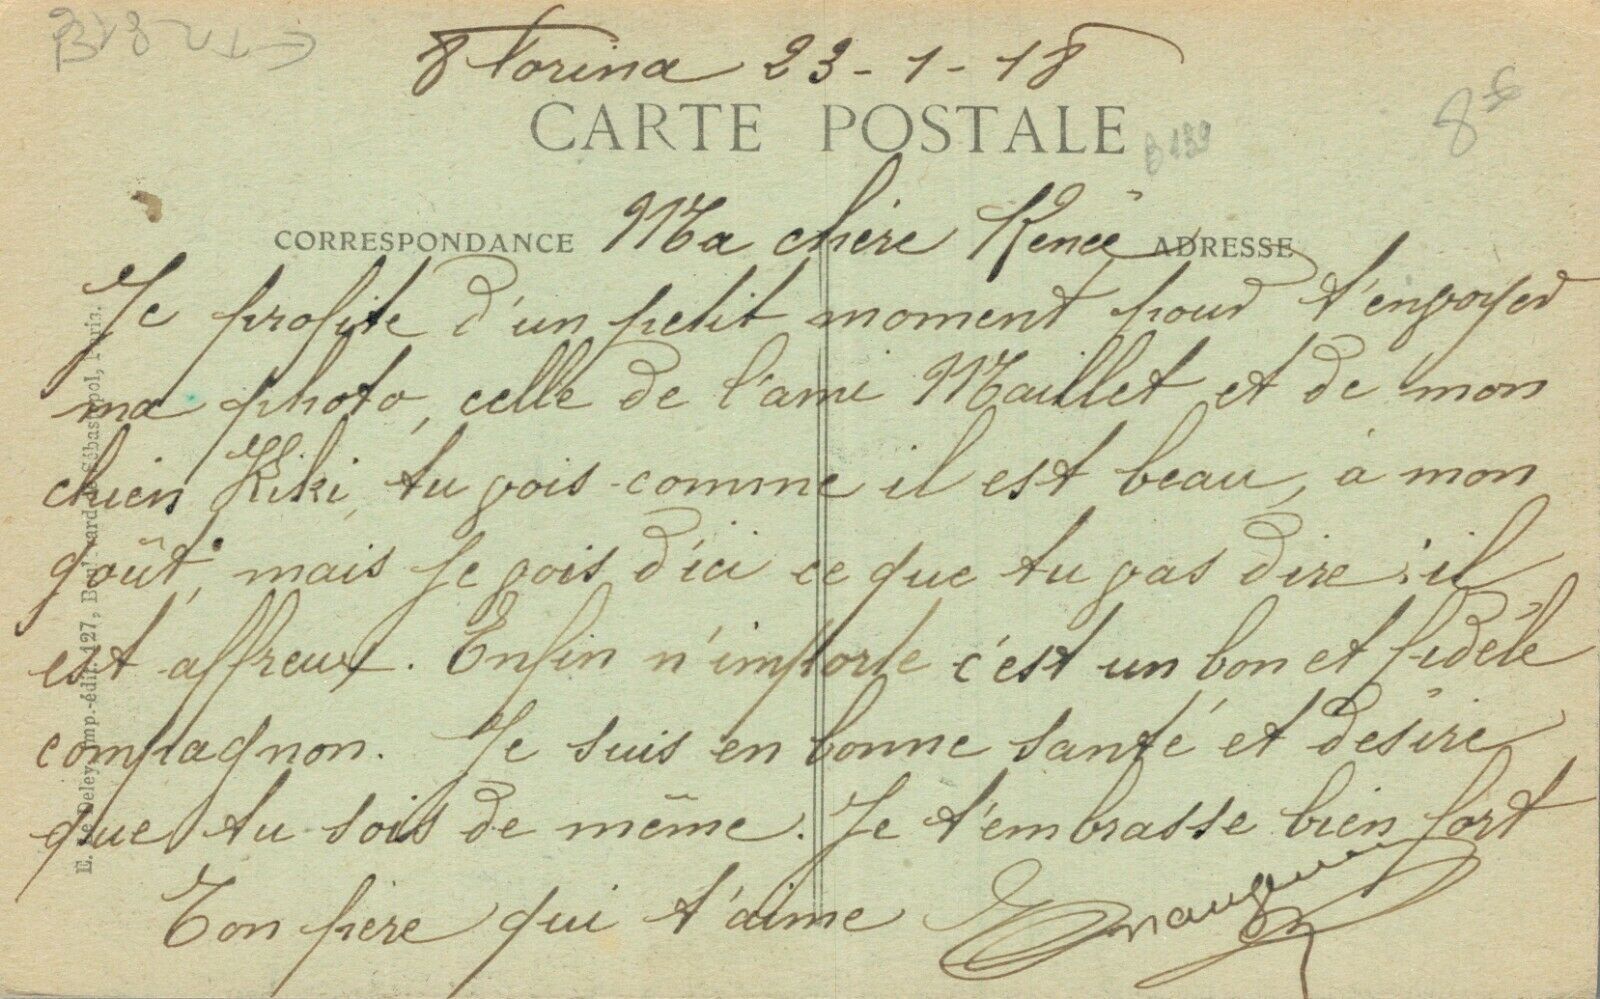 Florina 23-1-18
CARTE POSTALE
B 139
CORRESPONDANCE Ma chère Renée ADRESSE
Je profite d'un petit moment pour t'envoyer
ma photo, celle de l'ami Maillet et de mon
chien Kiki, tu vois comme il est beau, à mon
goût, mais je vois d'ici ce que tu vas dire : il
est affreux. Enfin n'importe c'est un bon et fidèle
compagnon. Je suis en bonne santé et désire
que tu sois de même. Je t'embrasse bien fort
Ton père qui t'aime
E. Le Deley, imp.-édit., 127, Boulevard Sébastopol, Paris.